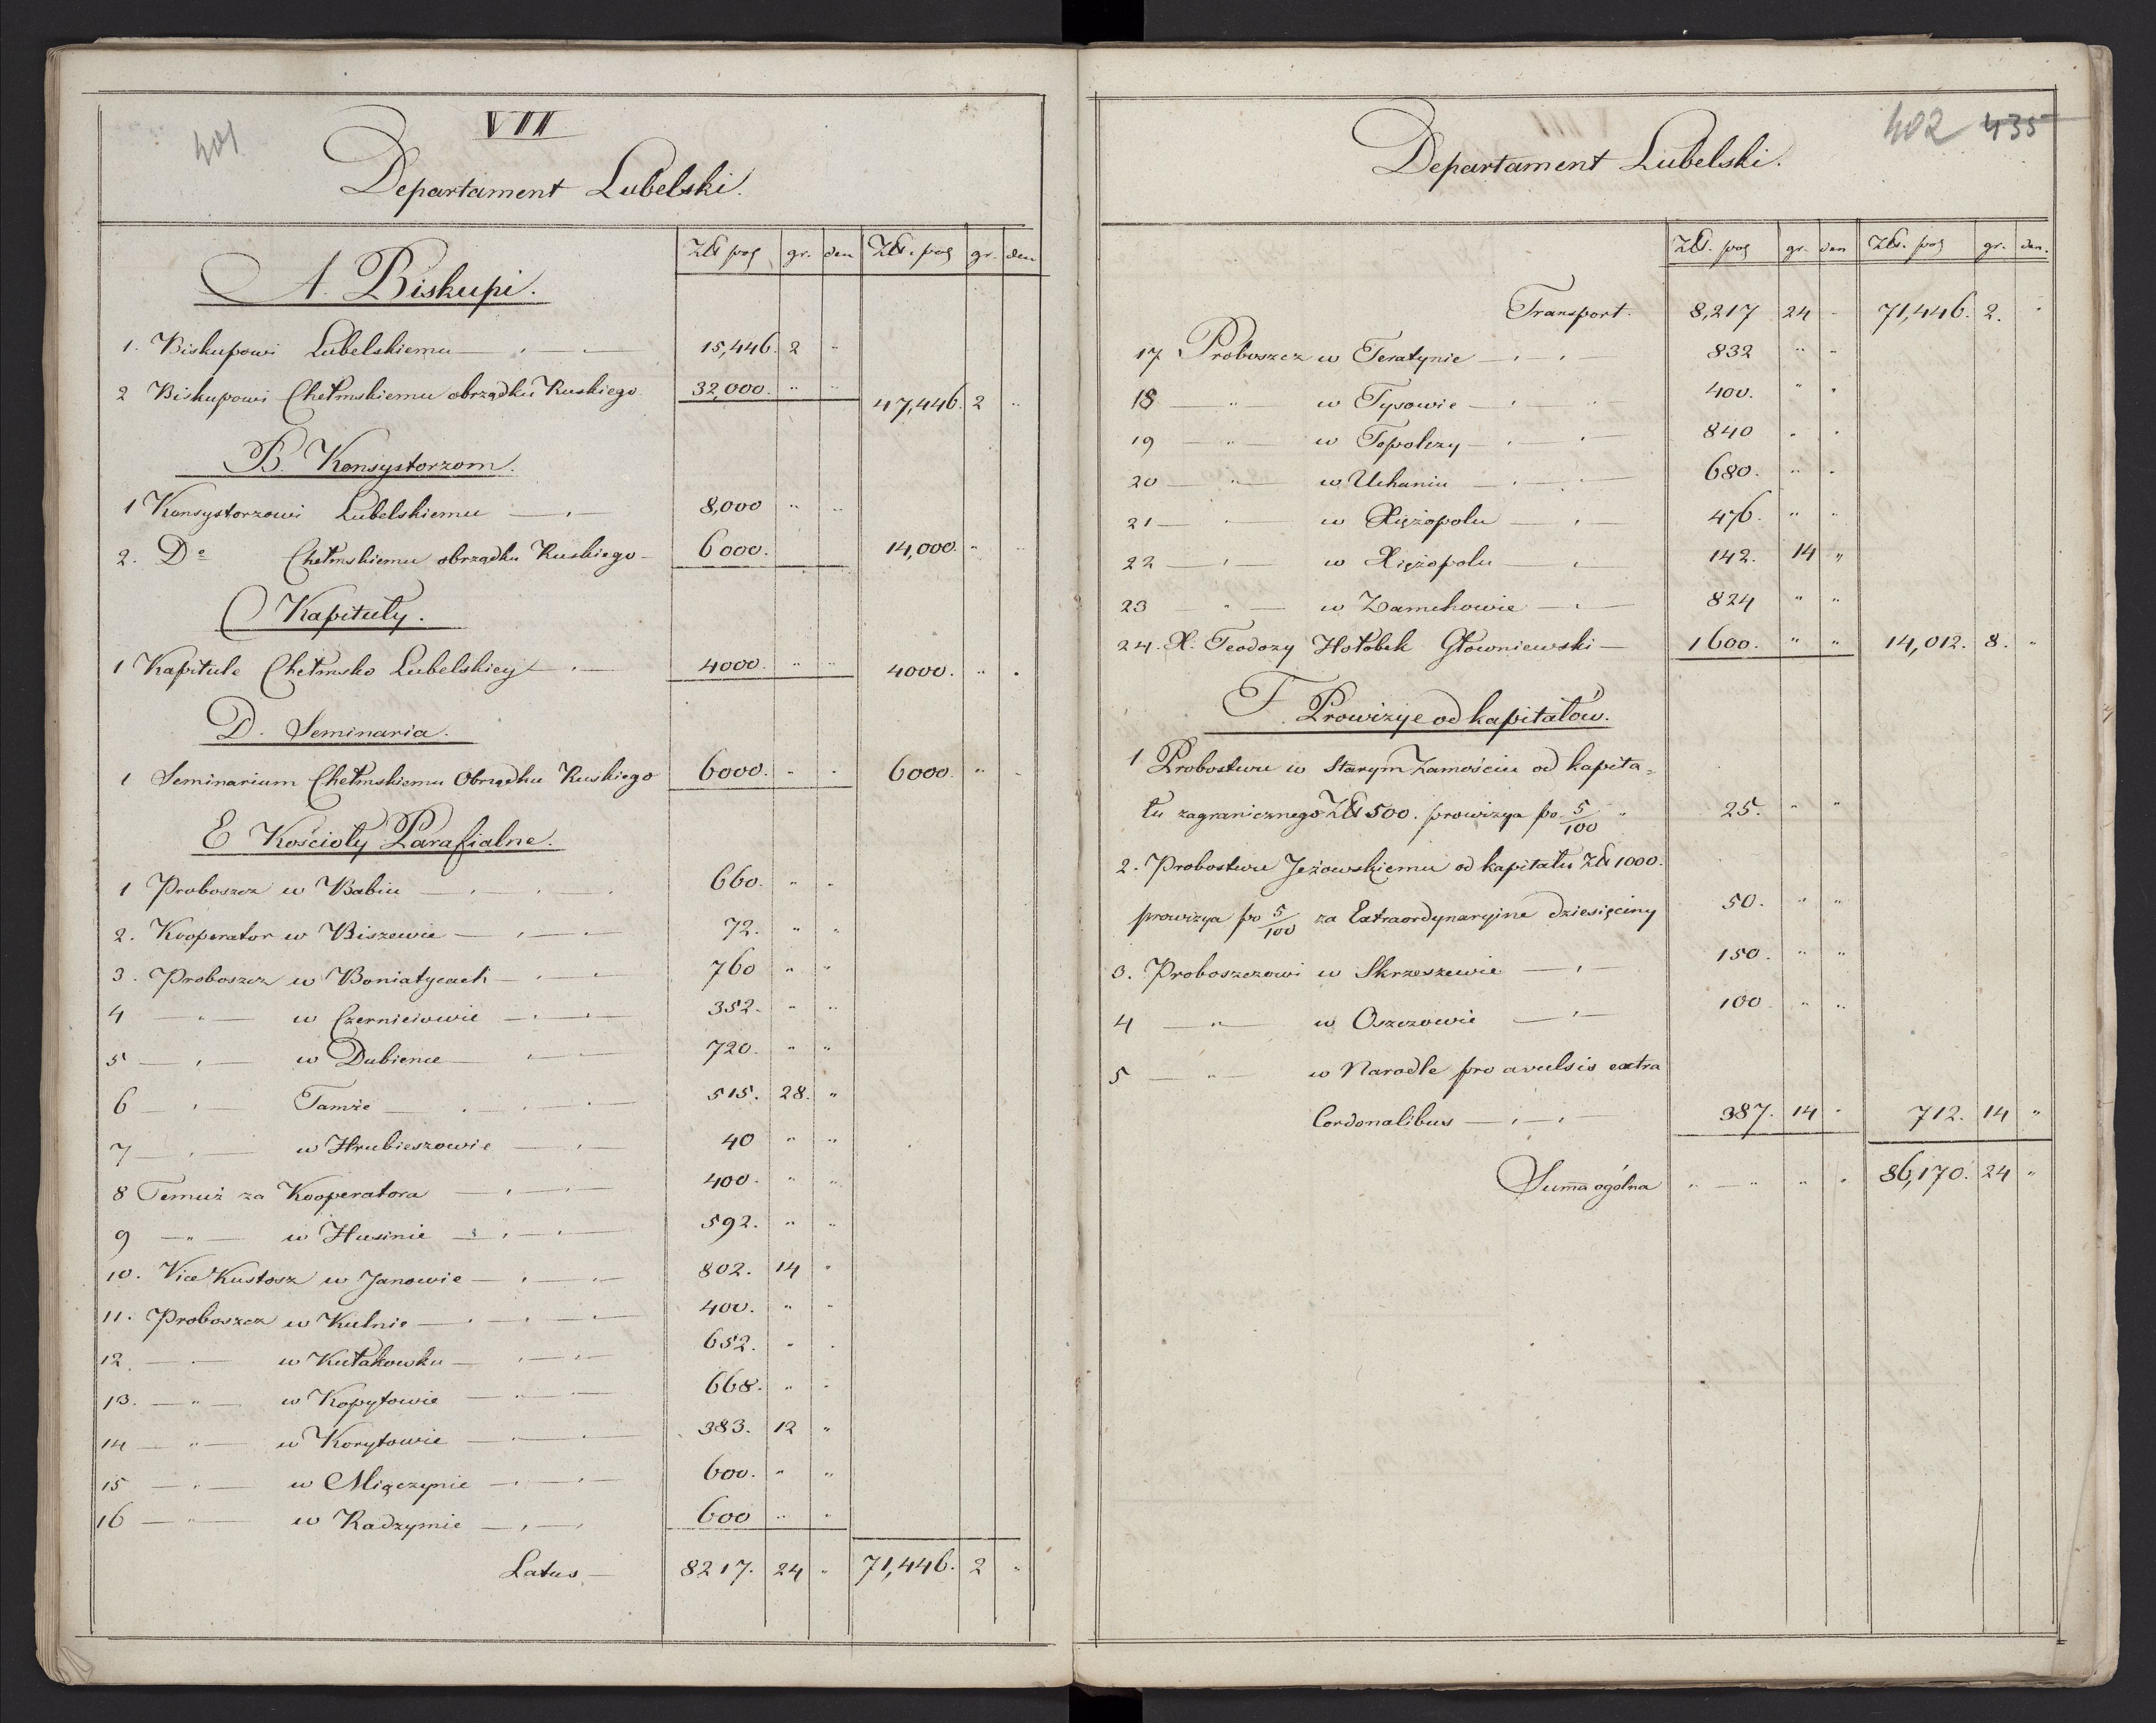 401
VII
Departament Lubelski.
Złt pol gr. den Złt. pol gr. den
A. Biskupi.
1. Biskupowi Lubelskiemu — " — 15,446. 2 "
2 Biskupowi Chełmskiemu obrządku Ruskiego 32,000. " " 47,446. 2 "
B. Konsystorzom.
1 Konsystorzowi Lubelskiemu — " — 8,000 " "
2. Do Chełmskiemu obrządku Ruskiego — 6000. 14,000. " "
C Kapituły.
1 Kapitule Chełmsko Lubelskiey — " — 4000. " " 4000. " "
D. Seminaria.
1 Seminarium Chełmskiemu Obrządku Ruskiego 6000. " " 6000. " "
E Kościoły Parafialne.
1 Proboszcz w Babiu — " — 660. " "
2. Kooperator w Biszewie — " — 72. " "
3. Proboszcz w Boniatycach — " — 760 " "
4 — " — w Czernieiowie — " — 352. " "
5 — " — w Dubience — " — 720. " "
6 — " — Tamże — " — 515. 28. "
7 — " — w Hrubieszowie — " — 40 " "
8 Temuż za Kooperatora — " — 400. " "
9 — " — w Husinie — " — 592. " "
10. Vice Kustosz w Janowie — " — 802. 14 "
11. Proboszcz w Kulnie — " — 400. " "
12. — " — w Kułakowku — " — 652. " "
13. — " — w Kopytowie — " — 668. " "
14 — " — w Korytowie — " — 383. 12 "
15 — " — w Miączynie — " — 600. " "
16 — " — w Radzymie — " — 600 " "
Latus — 8217. 24 " 71,446. 2 "
402 435
Departament Lubelski.
Złt. pol gr. den Złt. pol gr. den.
Transport. 8,217 24 " 71,446. 2. "
17 Proboszcz w Teratynie — " 832 " "
18 — " — w Tysowie — " — 400. " "
19 — " — w Topolczy — " — 840 " "
20 — " — w Uchaniu — " — 680. " "
21 — " — w Xiężopolu — " — 476. " "
22 — " — w Xiężopolu — " — 142. 14 "
23 — " — w Zamchowie — " — 824 " "
24. X. Teodozy Hołobek Głowniewski — 1600. " " 14,012. 8. "
F. Prowizye od kapitałów.
1 Probostwu w Starym Zamościu od kapita=
łu zagranicznego Złt 500. prowizya po 5/100 " 25. " "
2. Probostwu Jeżowskiemu od kapitału Złt 1000.
prowizya po 5/100 za Extraordynaryjne dziesięciny 50. " "
3. Proboszczowi w Skrzeszewie — " 150. " "
4 — " — w Oszczowie — " — 100 " "
5 — " — w Narodle pro avulsis extra
Cordonalibus — " — 387. 14 " 712. 14 "
Suma ogólna " — " " " 86,170. 24 "